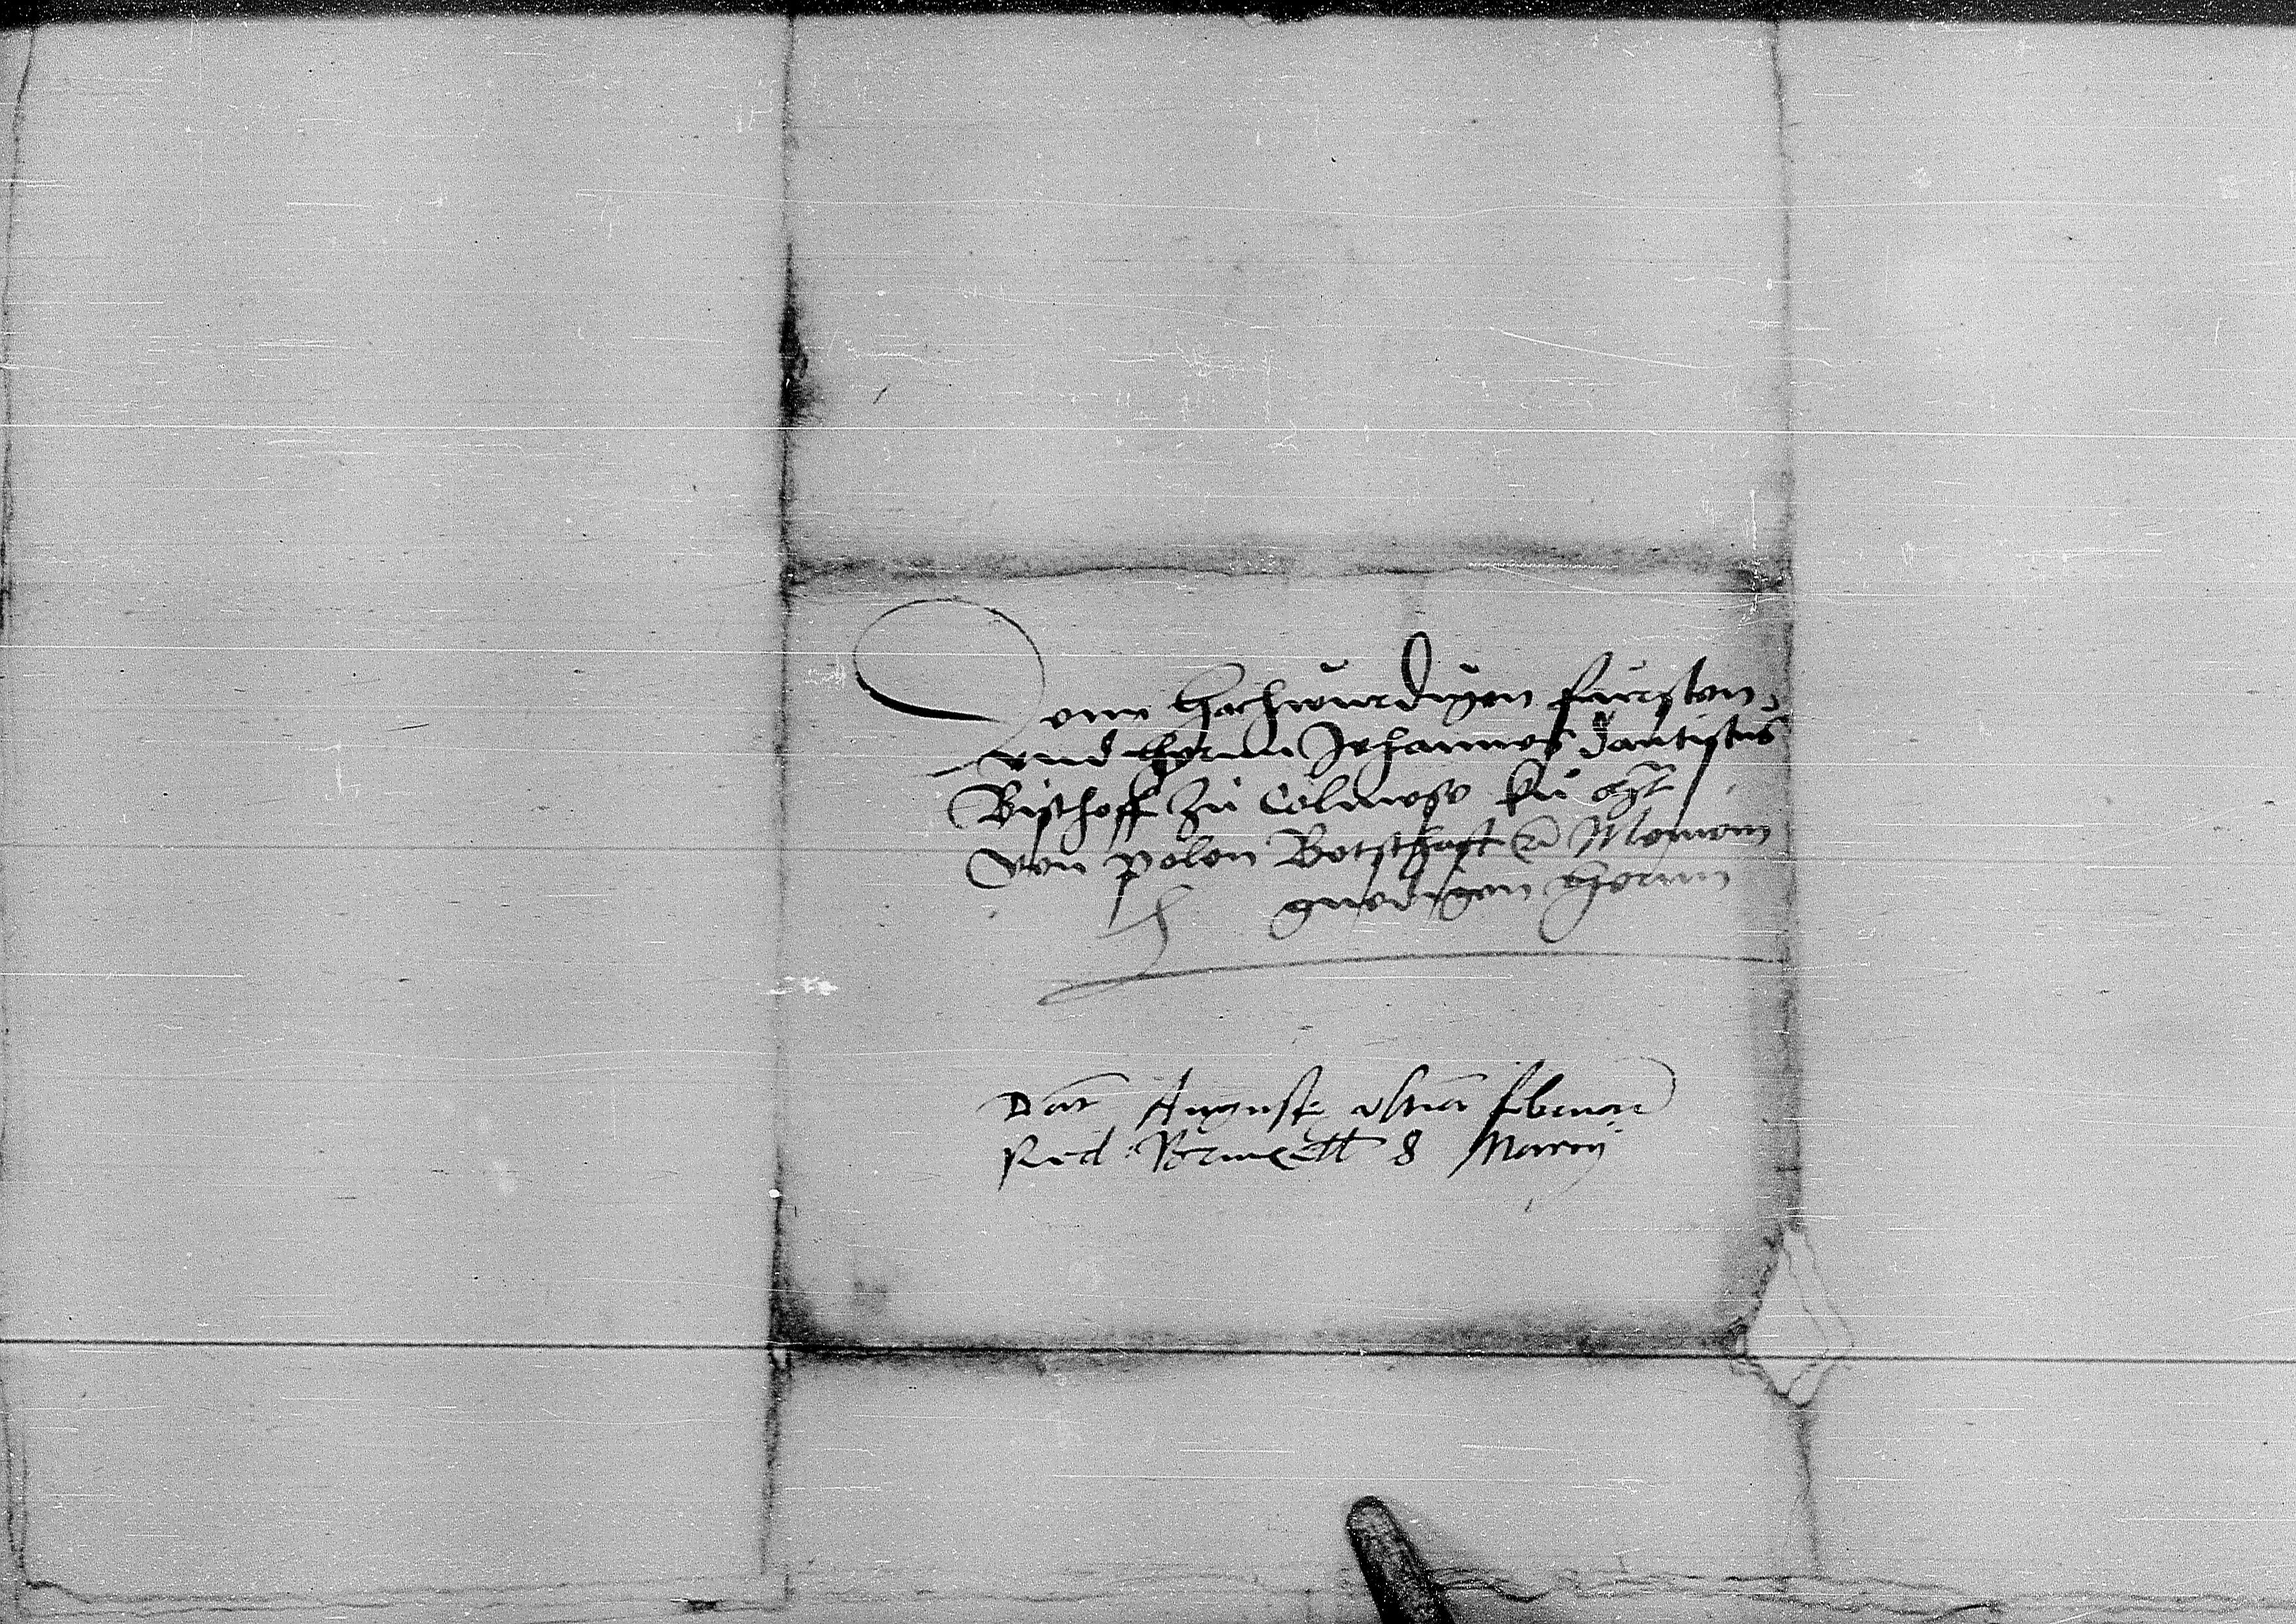 Dem Hochwurdigen fursten
vnd hernn Johannes dantiscus
Bischoff zu Colmese ku
von polen Botschafft Meinem
gnedigen hernn
Dat Auguste vltia februarii
Red Bruxell 8 Marcij